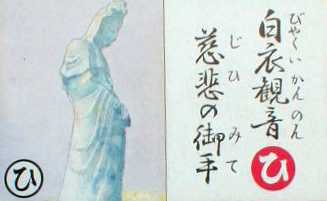 白衣観音
びやくいかんのん
慈悲の御手
じひみて
ひ
ひ